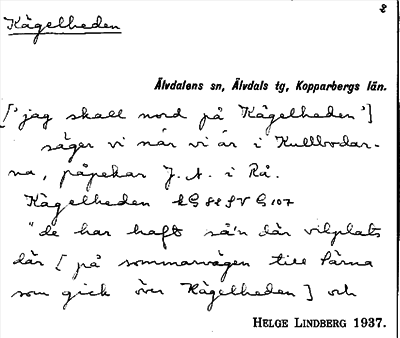 2
Kågelheden
Älvdalens sn, Älvdals tg, Kopparbergs län.
["jag skall nord på Kågelheden"]
säger vi när vi är i Kullbodar-
na, påpekar J. A. i Rå.
Kågelheden LG 82 SV G 107
"de har haft så'n där vilplats
där [på sommarvägen till Särna
som gick över Kågelheden] och
HELGE LINDBERG 1937.